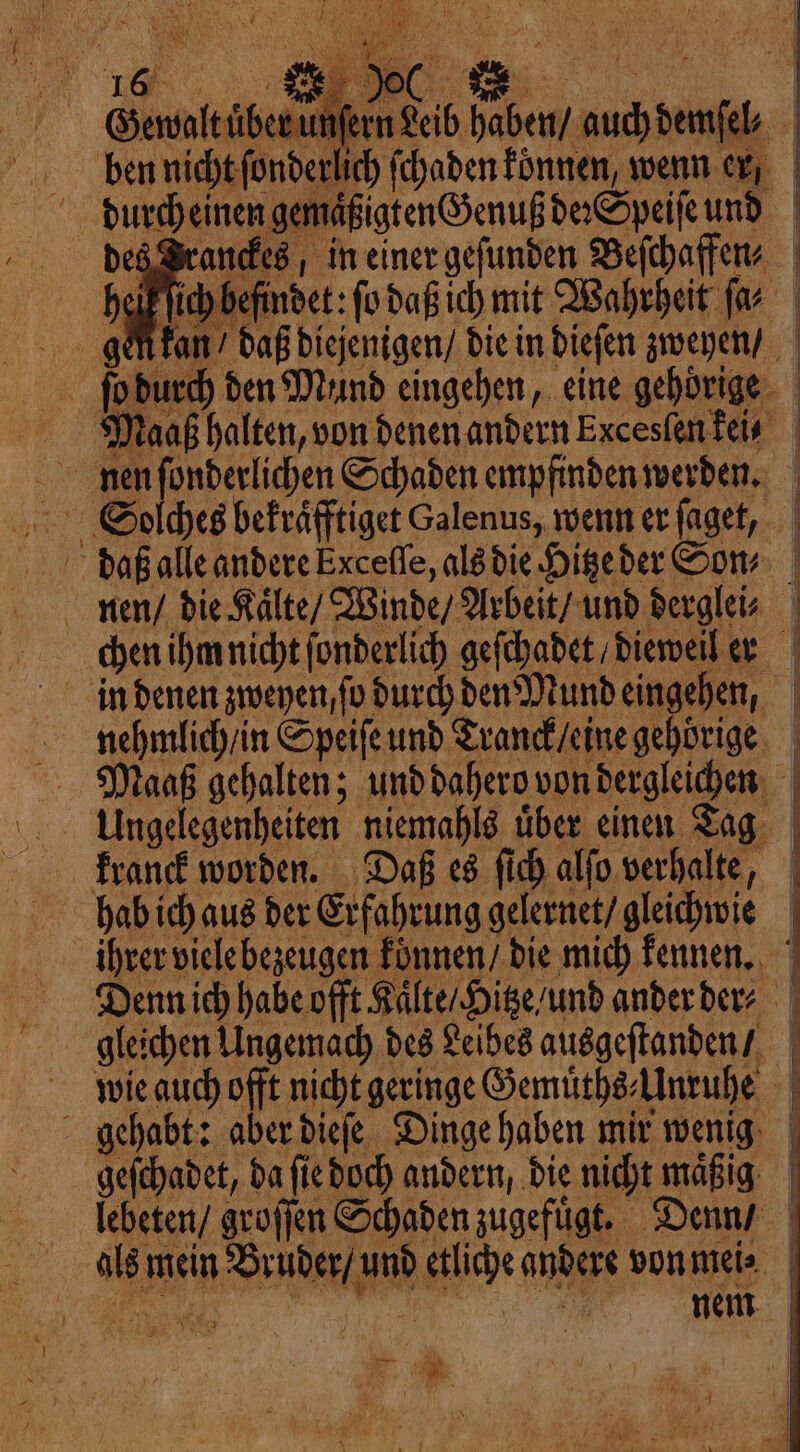 16 ❀ )o( ❀
Gewalt uͤber unſern Leib haben/ auch demſel⸗
ben nicht ſonderlich ſchaden koͤnnen, wenn er,
durch einen gemaͤßigten Genuß der Speiſe und
des Tranckes, in einer geſunden Beſchaffen⸗
heit ſich befindet: ſo daß ich mit Wahrheit ſa⸗
gen kan/ daß diejenigen/ die in dieſen zweyen/
ſo durch den Mund eingehen, eine gehoͤrige
Maaß halten, von denen andern Excesſen kei⸗
nen ſonderlichen Schaden empfinden werden.
Solches bekraͤfftiget Galenus, wenn er ſaget,
daß alle andere Exceſſe, als die Hitze der Son⸗
nen/ die Kaͤlte/ Winde/ Arbeit/ und derglei⸗
chen ihm nicht ſonderlich geſchadet/ dieweil er
in denen zweyen, ſo durch den Mund eingehen,
nehmlich/ in Speiſe und Tranck/ eine gehoͤrige
Maaß gehalten; und dahero von dergleichen
Ungelegenheiten niemahls uͤber einen Tag
kranck worden. Daß es ſich alſo verhalte,
hab ich aus der Erfahrung gelernet/ gleichwie
ihrer viele bezeugen koͤnnen/ die mich kennen.
Denn ich habe offt Kaͤlte/ Hitze/ und ander der⸗
gleichen Ungemach des Leibes ausgeſtanden/
wie auch offt nicht geringe Gemuͤths⸗Unruhe
gehabt: aber dieſe Dinge haben mir wenig
geſchadet, da ſie doch andern, die nicht maͤßig
lebeten/ groſſen Schaden zugefuͤgt. Denn/
als mein Bruder/ und etliche andere von mei⸗
nem